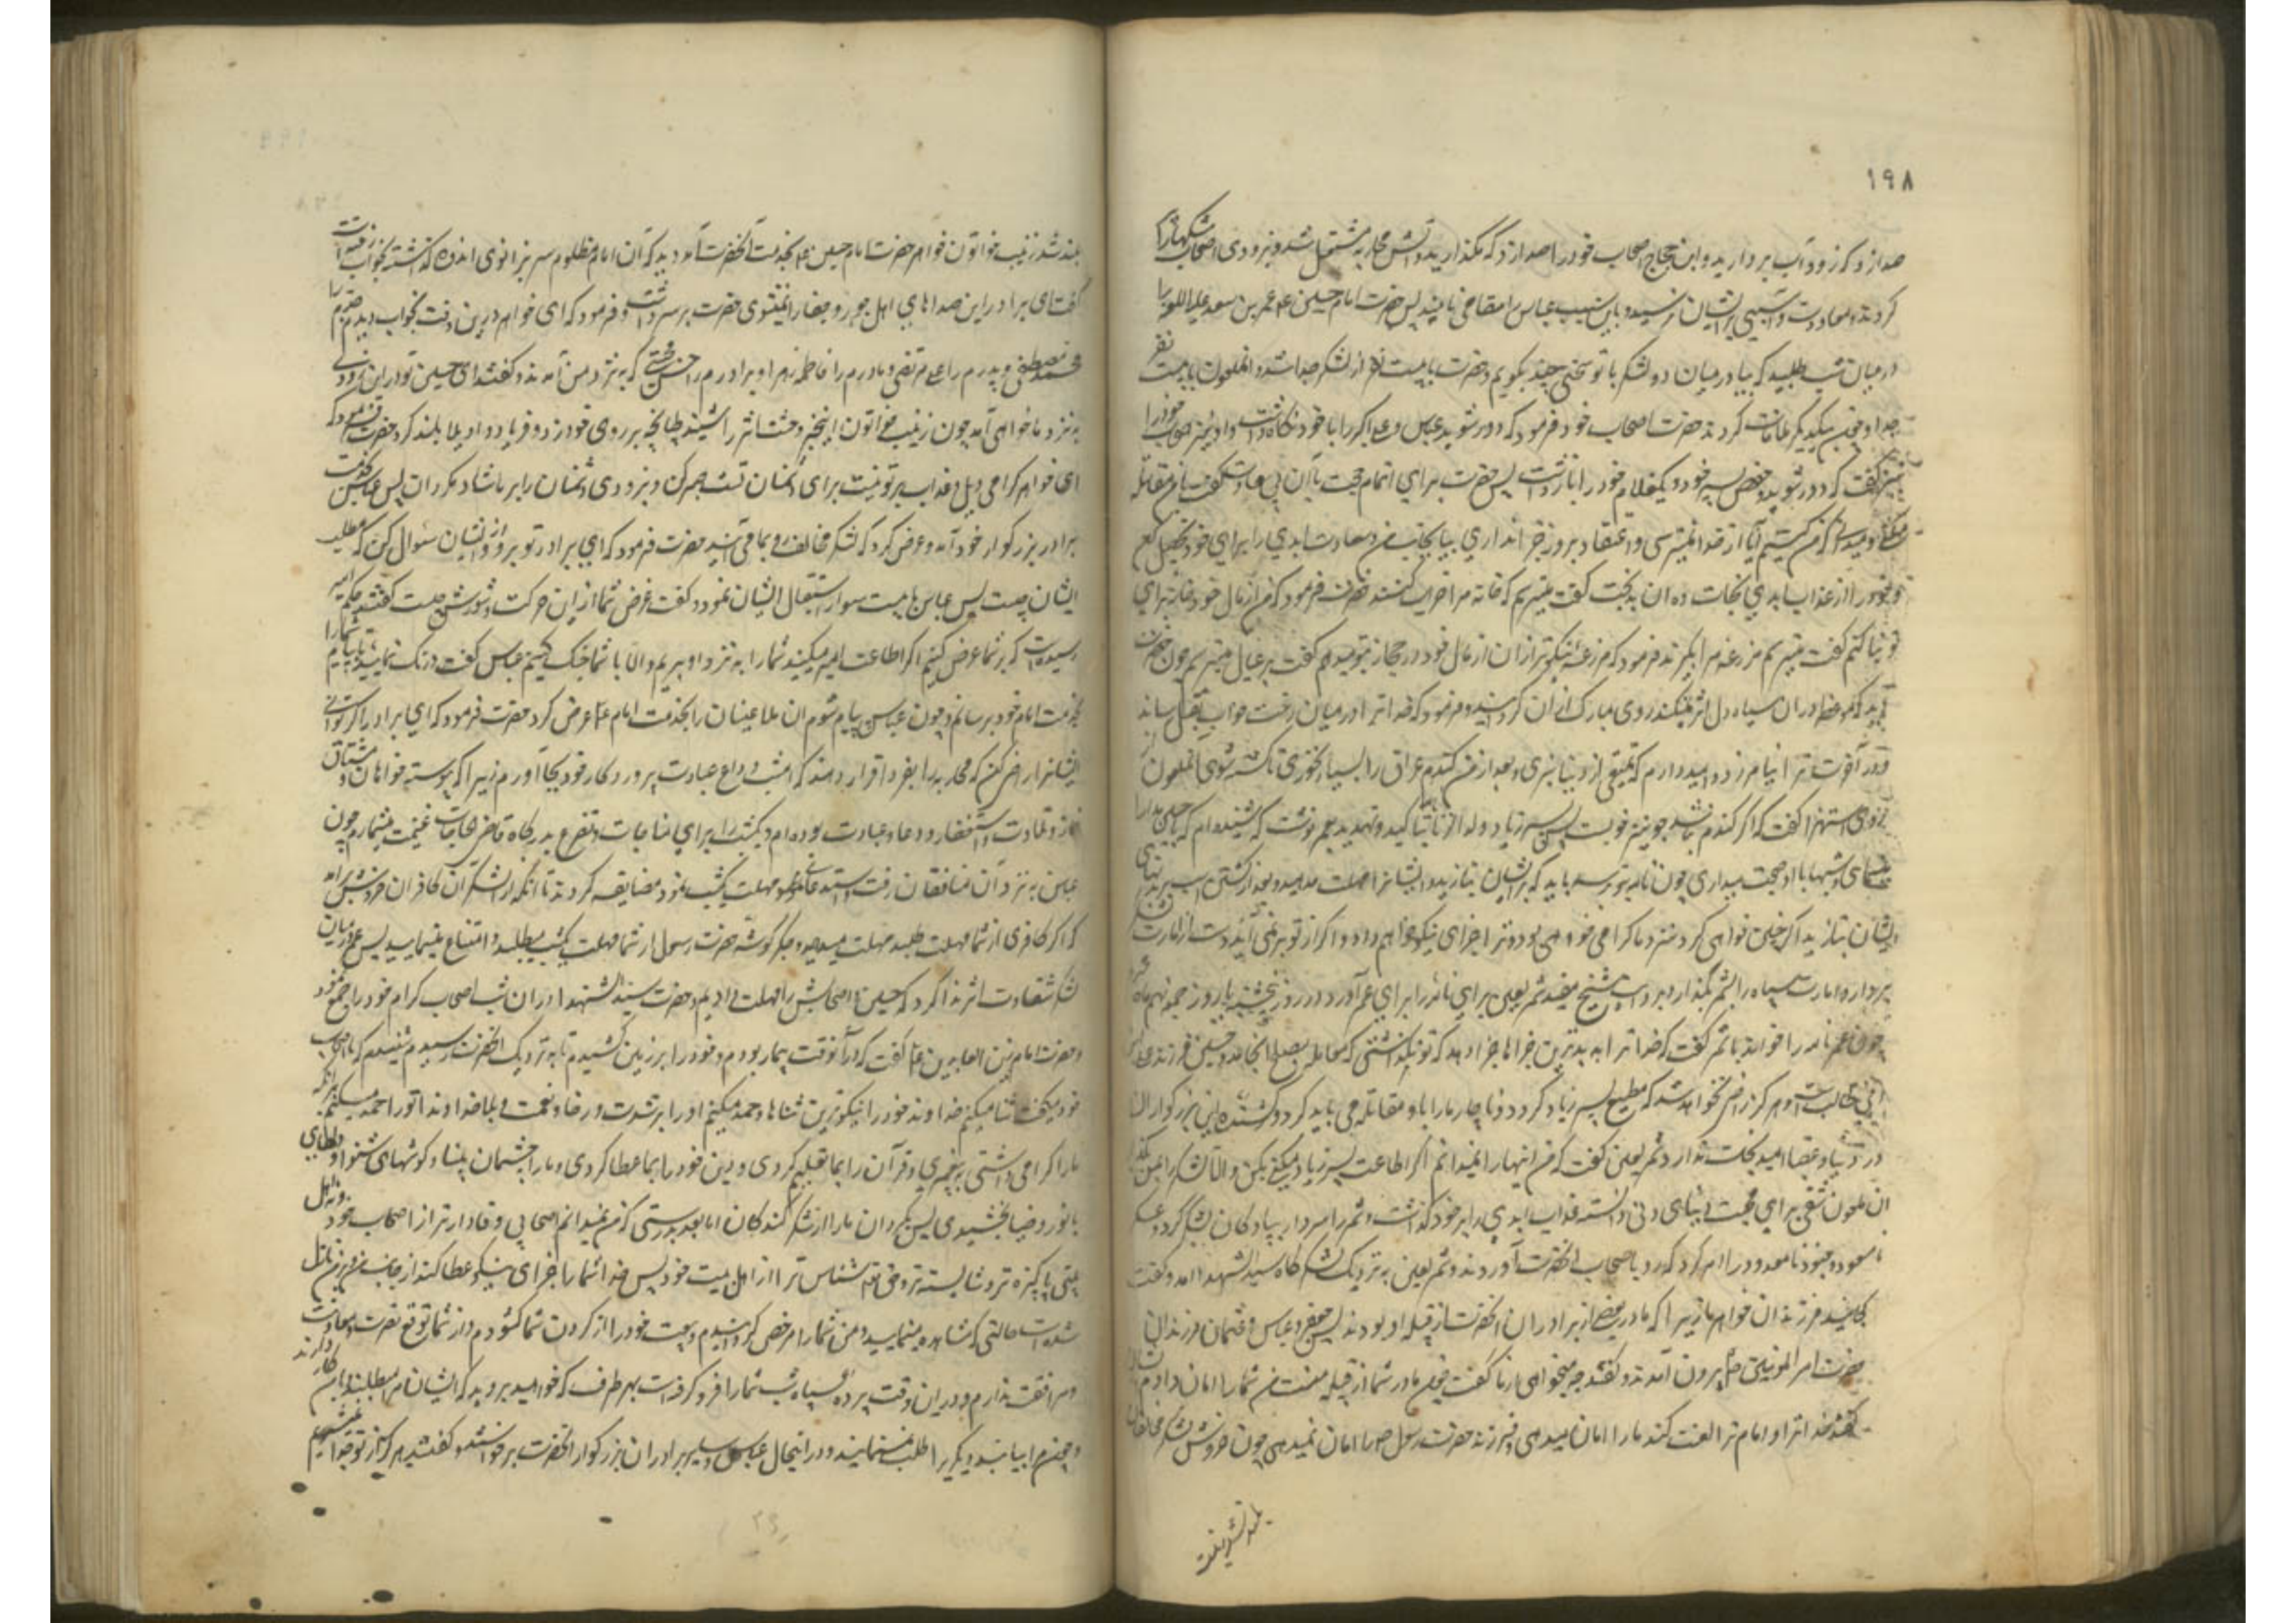 ۱۹۸
صدا زد که زود آب بردارید و ابن حجاج اصحاب خود را صدا زد که مگذارید و آتش محاربه مشتعل شد و بزودی اصحاب مشکها را
کردند و معاودت و آسیبی بایشان نرسید و باین سبب عباس را سقا می نامند پس حضرت امام حسین ع عمر بن سعد علیه اللعنه را
در میان شب طلبید که بیا در میان دو لشکر با تو سخنی چند بگویم و حضرت با بیست نفر از لشکر جدا شد و آنملعون با بیست نفر
جدا و چون بیکدیگر ملاقات کردند حضرت اصحاب خود فرمود که دور شوید عباس و علی اکبر را با خود نگاه داشت و او نیز اصحاب خود را
نیز گفت که دور شوید و حفص پسر خود و یکغلام خود را باز داشت پس حضرت برای اتمام حجت بآن بی سعادت گفت با من مقاتله
میکنی و میدانی که من کیستم آیا از خدا نمیترسی و اعتقاد بروز جزا نداری بیا بجانب من و سعادت ابدی را برای خود تحصیل کن
و خود را از عذاب ابدی نجات ده آن بدبخت گفت میترسم که خانه مرا خراب کنند حضرت فرمود که من از مال خود خانه برای
تو بنا کنم گفت میترسم مزرعه مرا بگیرند فرمود که مزرعه نیکوتر از آن از مال خود در حجاز بتو میدهم گفت بر عیال میترسم چون حضرت
دید که موعظه در آن سیاه دل اثر نمیکند روی مبارک از آن گردانید و فرمود که خدا ترا در میان رخت خواب بقتل رساند
و در آخرت ترا نیامرزد و امیدوارم که تمتعی از دنیا نبری و بعد از من گندم عراق را بسیار نخوری تا کشته شوی آنملعون
از روی استهزا گفت که اگر گندم نباشد جو نیز خوبست پس پسر زیاد ولد الزنا بتاکید و تهدید بعمر نوشت که شنیده ام که با حسین مدارا
مینمائی و شبها با او صحبت میداری چون نامه بتو رسد باید که بر ایشان بتازید و ایشانرا مهلت مدهید و بعد از کشتن اسب بر بدنهای
ایشان بتازید اگر چنین خواهی کرد نزد ما گرامی خواهی بود و ترا جزای نیکو خواهم داد و اگر از تو بر نمی آید دست از امارت لشکر
بردار و امارت سپاه را بشمر بگذار
چون عمر نامه را خواند با شمر گفت که خدا ترا به بدترین جزاها جزا دهد که تو نگذاشتی که معامله بصلح انجامد و حسین فرزند علی
ابن ابی طالب است و هرگز راضی نخواهد شد که مطیع پسر زیاد گردد و ناچار ما را با او مقاتله می باید کرد و کشنده این بزرگوار البته
در دنیا و عقبا امید نجات ندارد شمر لعین گفت که من اینها را نمیدانم اگر اطاعت پسر زیاد میکنی بکن و الا لشکر را بمن بگذار
آن ملعون شقی برای محبت دنیای دنی دانسته عذاب ابدی را بر خود گذاشت و شمر را سردار پیادگان لشکر گردانید
نامسعود و جنود نامعدود را امر کرد که رو باصحاب آنحضرت آوردند و شمر لعین به نزدیک لشکرگاه سید الشهدا آمد و گفت
کجایند فرزندان خواهر ما زیرا که مادر بعضی از برادران آنحضرت از قبیله او بودند پس جعفر و عباس و عثمان فرزندان
حضرت امیر المومنین ع بیرون آمدند و گفتند چه میخواهی از ما گفت چون مادر شما از قبیله منست من شما را امان دادم
گفتند خدا ترا و امام ترا لعنت کند ما را امان میدهی و فرزند حضرت رسول را امان نمیدهی چون خروش لشکر مخالفان
بلند شد زینب
بلند شد زینب خواتون خواهر حضرت امام حسین ع بخدمت آنحضرت آمد دید که آن امام مظلوم سر بزانوی اندوه گذاشته بخواب رفته است
گفت ای برادر این صداهای اهل جور و جفا را نمیشنوی حضرت سر برداشت و فرمود که ای خواهر درین وقت بخواب دیدم جدم را
محمد مصطفی و پدرم را علی مرتضی و مادرم را فاطمه زهرا و برادرم را حسن مجتبی که به نزد من آمدند و گفتند ای حسین تو در این زودی
به نزد ما خواهی آمد چون زینب خواتون این خبر وحشت اثر را شنید طپانچه بر روی خود زد و فریاد واویلا بلند کرد حضرت فرمود که
ای خواهر گرامی ویل و عذاب بر تو نیست برای دشمنان تست صبر کن و بزودی دشمنان را بر ما شاد مگردان پس عباس گفت
برادر بزرگوار خود آمد و عرض کرد که لشکر مخالف رو بما می آیند حضرت فرمود که ای برادر تو برو و از ایشان سئوال کن که مطلب
ایشان چیست پس عباس با بیست سوار استقبال ایشان نمود و گفت غرض شما ازین حرکت و شورش چیست گفتند حکم امیر
رسیده است که بر شما عرض کنیم اگر اطاعت امیر میکنید شما را به نزد او بریم و الا با شما جنگ کنیم عباس گفت درنگ نمایید تا پیام شما را
بخدمت امام خود برسانم و چون عباس پیام شوم آن ملاعینان را بخدمت امام ع عرض کرد حضرت فرمود که ای برادر اگر توانی
ایشانرا راضی کن که محاربه را بفردا قرار دهند که امشب وداع عبادت پروردگار خود بجا آورم زیرا که پیوسته خواهان و مشتاق
نماز و تلاوت و استغفار و دعا و عبادت بوده ام و یکشب را برای مناجات و تضرع بدرگاه قاضی الحاجات غنیمت میشمارم چون
عباس به نزد آن منافقان رفت و استدعای مهلت یکشب نمود مضایقه کردند تا آنکه از لشکر آن کافران خروش برآمد
که اگر کافری از شما مهلت طلبد مهلت میدهید و جگرگوشه حضرت رسول از شما مهلت یکشب میطلبد و امتناع مینمایید پس عمر در میان
لشکر شقاوت اثر ندا کرد که حسین و اصحابش را مهلت دادیم و حضرت سید الشهدا در آن شب اصحاب کرام خود را جمع نمود
و حضرت امام زین العابدین ع گفت که در آنوقت بیمار بودم و خود را بر زمین کشیدم تا به نزدیک آنحضرت رسیدم شنیدم که با اصحاب
خود میگفت ثنا میکنم خداوند خود را نیکوترین ثناها و حمد میکنم او را بر شدت و رخا و نعمت و بلا خداوندا ترا حمد میکنم برانکه
ما را گرامی داشتی به پیغمبری و قرآن را بما تعلیم کردی و دین خود را بما عطا کردی و ما را چشمان بینا و گوشهای شنوا و دلهای
با نور و ضیا بخشیدی پس بگردان ما را از شکر کنندگان اما بعد بدرستی که من نمیدانم اصحابی وفادارتر از اصحاب خود و نه اهل
بیتی پاکیزه تر و شایسته تر و حق شناس تر از اهل بیت خود پس خدا شما را جزای نیکو عطا کند از جانب من
شده است حالتی که مشاهده مینمایید و من شما را مرخص گردانیدم و بیعت خود را از گردن شما گشودم و از شما توقع نصرت و معاونت
و مرافقت ندارم و در این وقت پرده سیاه شب شما را فرو گرفته است بهر طرف که خواهید بروید که ایشان مرا میطلبند با من کار دارند
و چون مرا بیابند دیگری را طلب نمینمایند و در اینحال عباس و سایر برادران بزرگوار آنحضرت برخواستند و گفتند هرگز از تو جدا نمیشویم